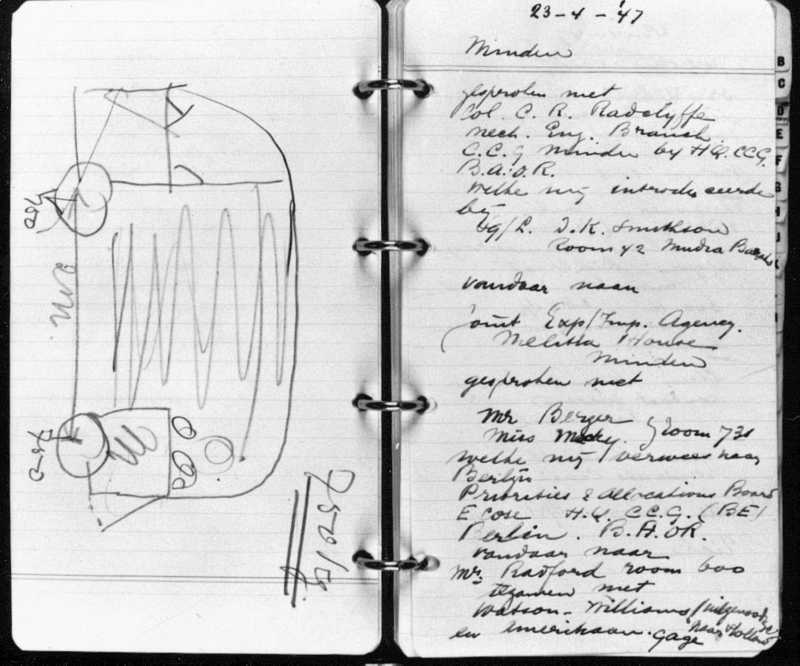 750
2 m.
750
750/15
23-4-'47
Minden
gesproken met
Col. C. R. Radclyffe
Mech. Eng. Branch
C.C.G Minden by HQ. CCG.
B.A.O.R.
welke mij introduceerde
bij
D.K. Smithson
Room 42 Mudra
vandaar naar
Joint Exp/Imp. Agency.
Melitta House
Minden
gesproken met
Mr Berger
Miss Room 731
welke mij verwees naar
Berlijn
Priorities & Allocations Board
Ecose H.Q. C.C.G. (BE)
Berlin. B.A.O.R.
vandaar naar
Mr. Radford room 600
tezamen met
Watson-Williams naar Holland
en Amerikaan. Gage
B
C
D
E
F
G
H